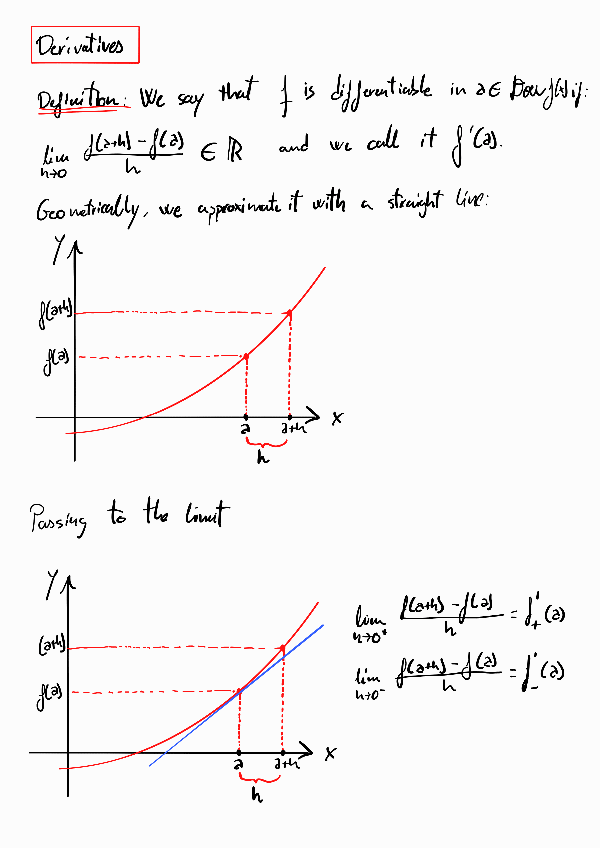 Derivatives
Definition: We say that f is differentiable in a ∈ Dom f(x) if:
lim h→0 f(a+h) - f(a) / h ∈ ℝ and we call it f'(a).
Geometrically, we approximate it with a straight line:
Y
f(a+h)
f(a)
a a+h X
h
Passing to the limit
Y
(a+h)
f(a)
a a+h X
h
lim h→0⁺ f(a+h) - f(a) / h = f'₊(a)
lim h→0⁻ f(a+h) - f(a) / h = f'₋(a)